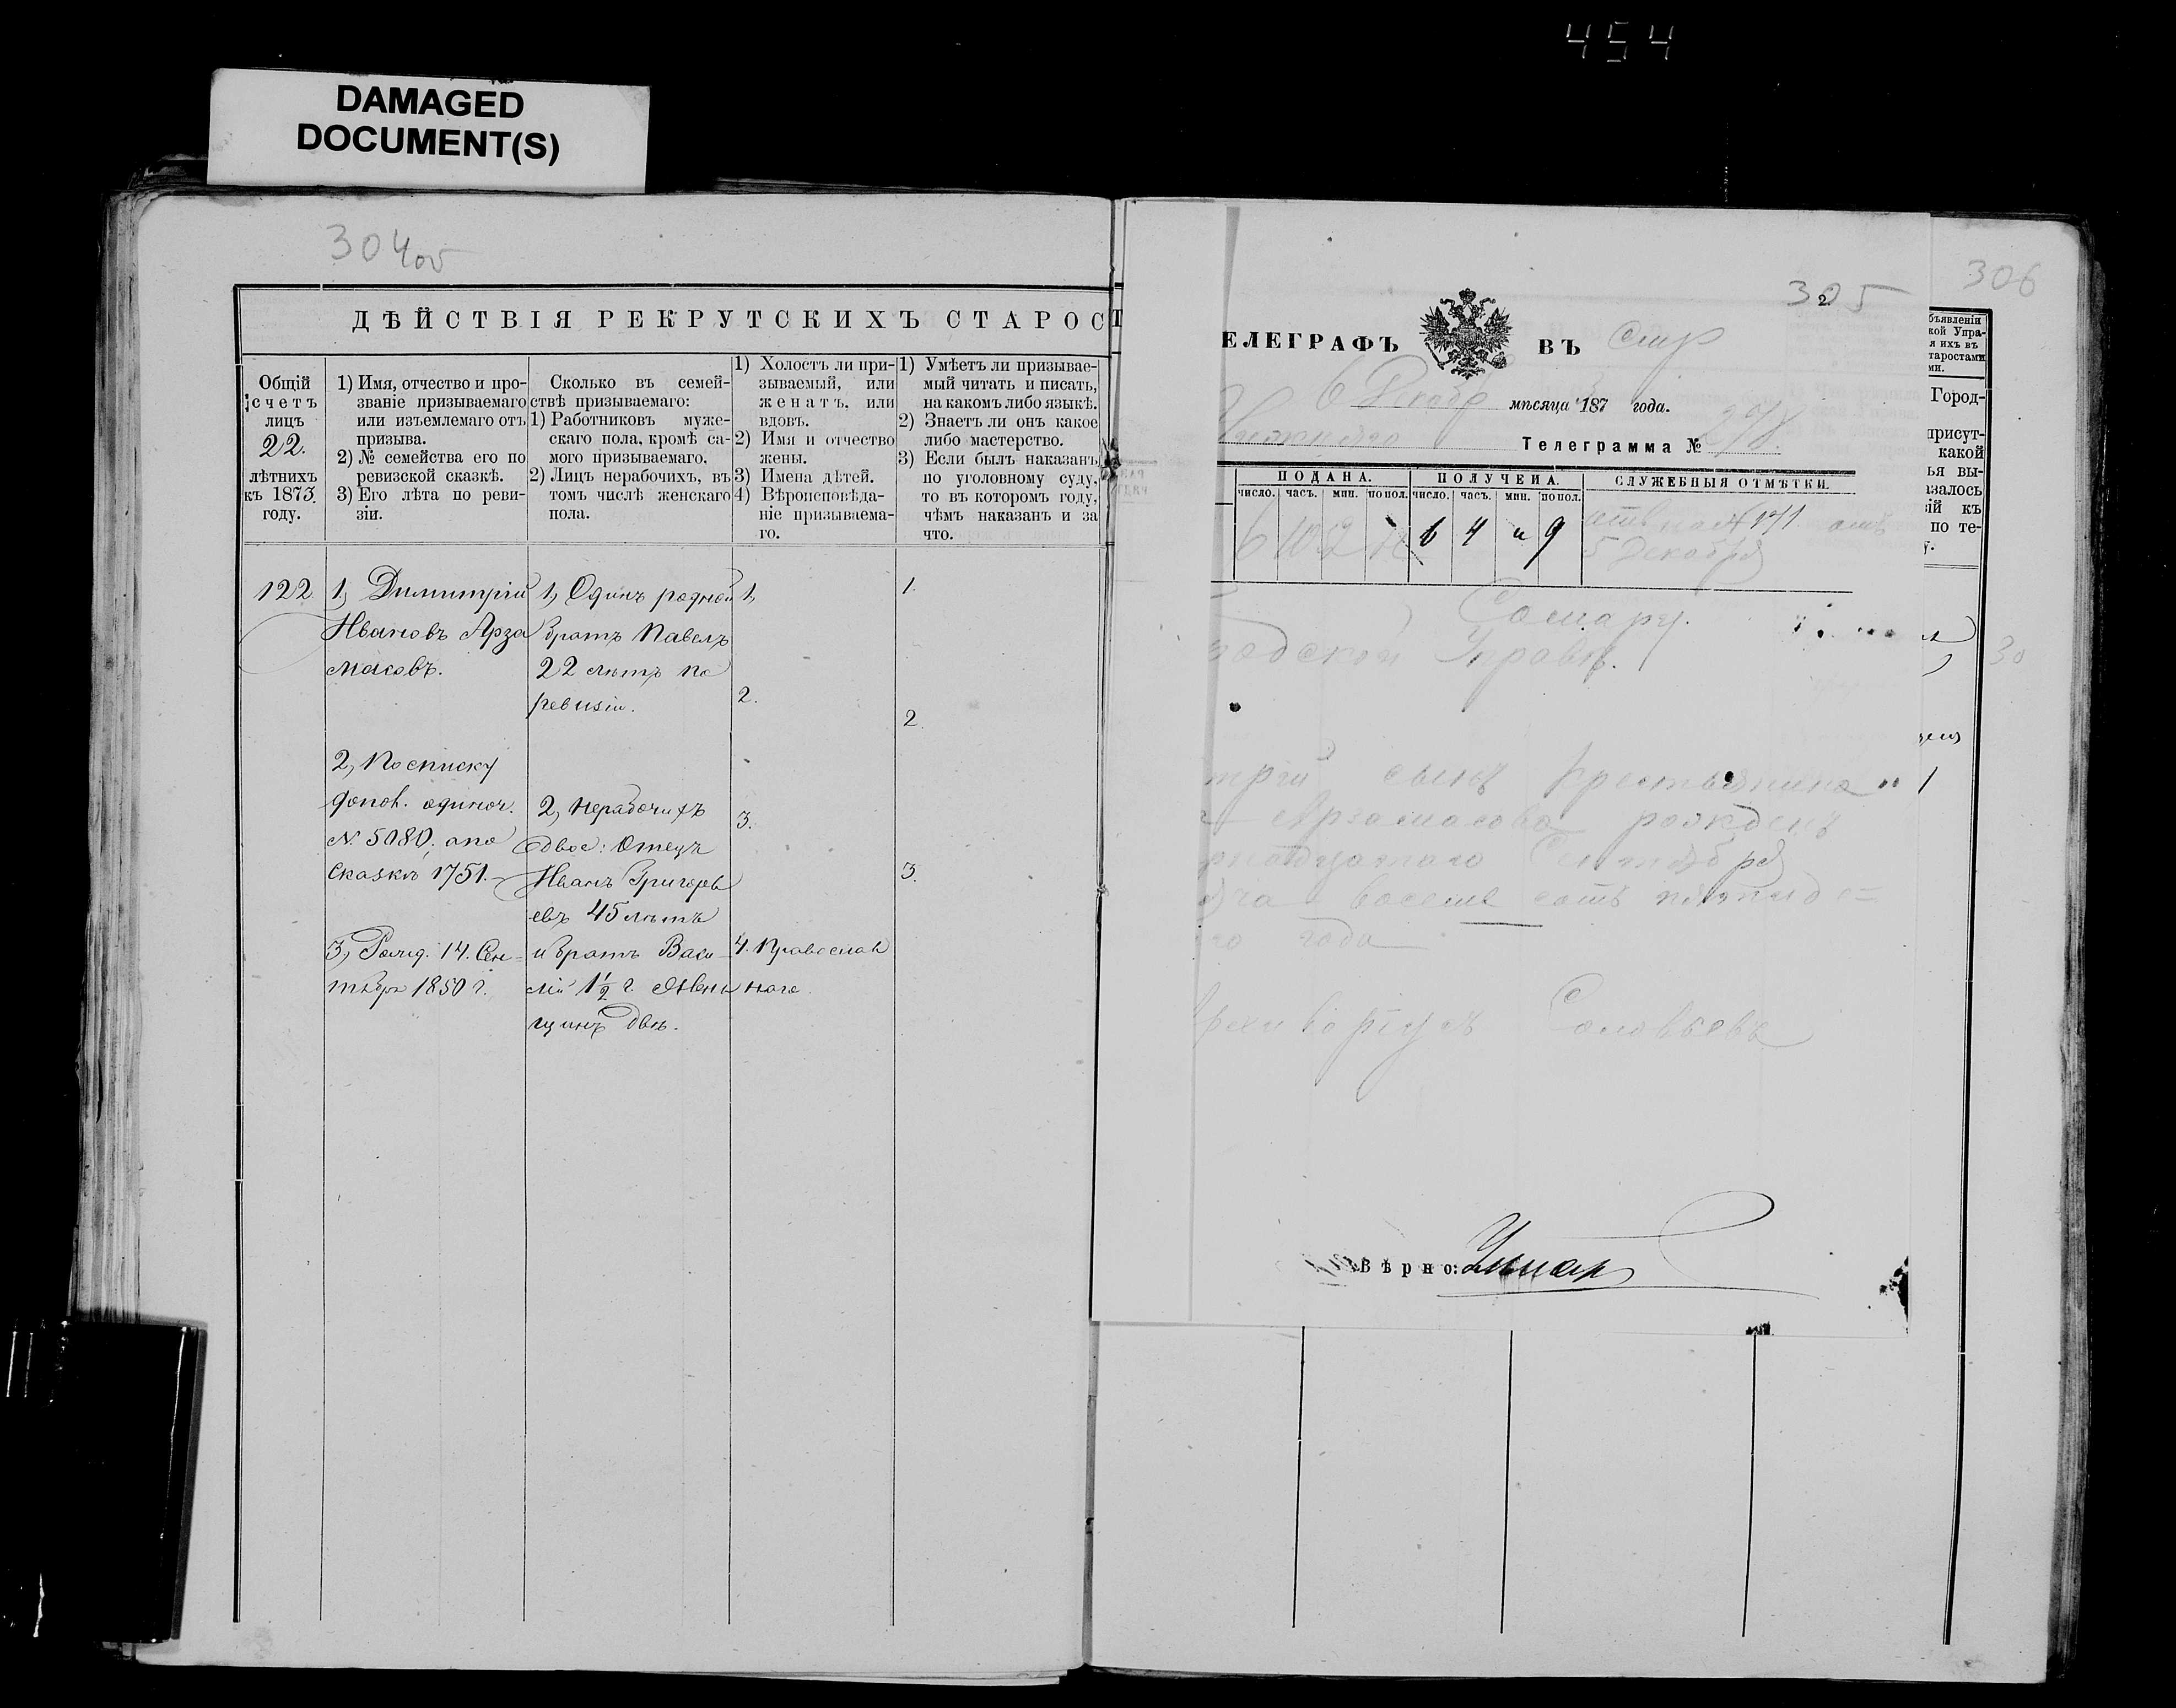 454
DAMAGED
DOCUMENT(S)
304 об
ДѢЙСТВІЯ РЕКРУТСКИХЪ СТАРОСТ
Общій
счетъ
лицъ
22.
лѣтнихъ
къ 1873
году.
1) Имя, отчество и про-
званіе призываемаго
или изъемлемаго отъ
призыва.
2) № семейства его по
ревизской сказкѣ.
3) Его лѣта по реви-
зіи.
Сколько въ семей-
ствѣ призываемаго:
1) Работниковъ муже-
скаго пола, кромѣ са-
мого призываемаго.
2) Лицъ нерабочихъ, въ
томъ числѣ женскаго
пола.
1) Холостъ ли при-
зываемый, или
женатъ, или
вдовъ.
2) Имя и отчество
жены.
3) Имена дѣтей.
4) Вѣроисповѣда-
ніе призываема-
го.
1) Умѣетъ ли призывае-
мый читать и писать,
на какомъ либо языкѣ.
2) Знаетъ ли онъ какое
либо мастерство.
3) Если былъ наказанъ
по уголовному суду,
то въ которомъ году,
чѣмъ наказанъ и за
что.
122
1, Димитрій
Ивановъ Арза
масовъ.
2, По списку
допол. одиноч.
№ 5080, а по
сказкѣ 1751.
3, Рожд. 14. Сен-
тября 1850 г.
1, Одинъ родной
братъ Павелъ
22 лѣтъ по
ревизіи.
2, Нерабочихъ
двое: Отецъ
Иванъ Григорьев
евъ 45 лѣтъ
и братъ Васи-
лій 1½ г. Жен
щинъ двѣ.
1,
2.
3.
4. Православ
наго.
1.
2.
3.
305
2
306
ЕЛЕГРАФЪ ВЪ
6 Декабр мѣсяца 1873 года.
Телеграмма № 278
ПОДАНА.
ПОЛУЧЕНА.
СЛУЖЕБНЫЯ ОТМѢТКИ.
число. часъ. мин. по пол. число. часъ. мин. по пол.
6 10 2
6 4 и 9
отв на № 171 отъ
5 Декабря
Самару.
родской Управѣ.
трій сынъ крестьянина
Арзамасова рожденъ
рнадцатаго Сентября
яча восемь сотъ пятиде=
го года
рхиваріусъ Соловьевъ
Вѣрно:
бъявленіи
кой Упра-
я ихъ въ
таростами
ми.
Город-
присут-
какой
ья вы-
азалось
ій къ
по те-
у.
30